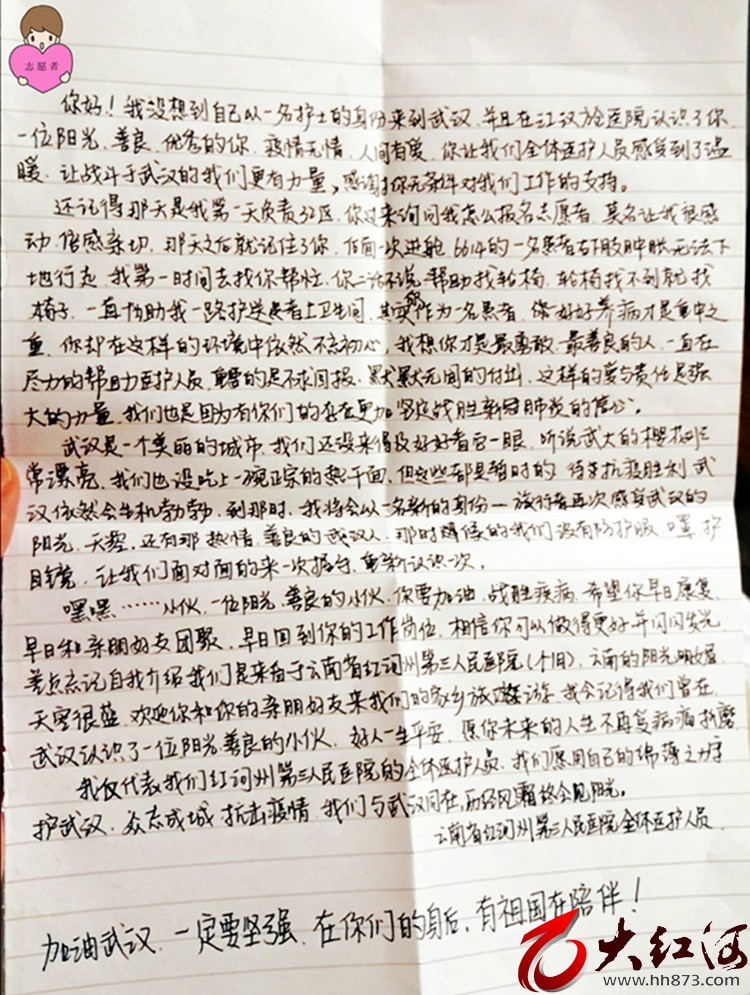 志愿者
你好！我没想到自己以一名护士的身份来到武汉，并且在江汉方舱医院认识了你
一位阳光、善良、优秀的你，疫情无情，人间有爱，你让我们全体医护人员感受到了温
暖，让战斗于武汉的我们更有力量，感谢你无条件对我们工作的支持。
还记得那天是我第一天负责32区，你过来询问我怎么报名志愿者，莫名让我很感
动，倍感亲切，那天之后就记住了你，后面一次进舱，6614的一名患者右下肢肿胀无法下
地行走，我第一时间去找你帮忙，你二话不说帮助找轮椅，轮椅找不到就找
椅子，一直协助我一路护送患者上卫生间，其实作为一名患者，你好好养病才是重中之
重，你却在这样的环境中依然不忘初心，我想你才是最勇敢、最善良的人，一直在
尽力的帮助医护人员，重要的是不求回报，默默无闻的付出，这样的爱与责任是强
大的力量，我们也是因为有你们的存在更加坚定战胜新冠肺炎的信心。
武汉是一个美丽的城市，我们还没来得及好好看它一眼，听说武大的樱花非
常漂亮，我们也没吃上一碗正宗的热干面，但这些都是暂时的，待到抗疫胜利，武
汉依然会生机勃勃，到那时，我将会以一名新的身份—旅行者再次感受武汉的
阳光、天空，还有那热情、善良的武汉人，那时候的我们没有防护服、口罩、护
目镜，让我们面对面的来一次握手，重新认识一次。
嘿嘿……小伙，一位阳光、善良的小伙，你要加油，战胜疾病，希望你早日康复，
早日和亲朋好友团聚，早日回到你的工作岗位，相信你可以做得更好并闪闪发光
差点忘记自我介绍我们是来自于云南省红河州第三人民医院（个旧），云南的阳光明媚
天空很蓝，欢迎你和你的亲朋好友来我们的家乡旅游，我会记得我们曾在
武汉认识了一位阳光、善良的小伙，好人一生平安，愿你未来的人生不再受病痛折磨
我仅代表我们红河州第三人民医院的全体医护人员，我们愿用自己的绵薄之力守
护武汉，众志成城，抗击疫情，我们与武汉同在，历经风霜终会见阳光。
云南省红河州第三人民医院全体医护人员
加油武汉，一定要坚强，在你们的身后，有祖国在陪伴！
大红河
www.hh873.com